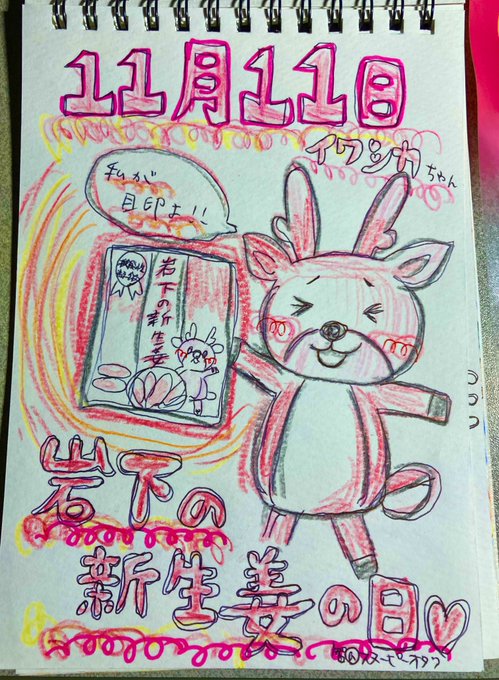 11月11日
イワシカちゃん
私が
目印よ!!
岩下の新生姜
岩下の
新生姜の日♡